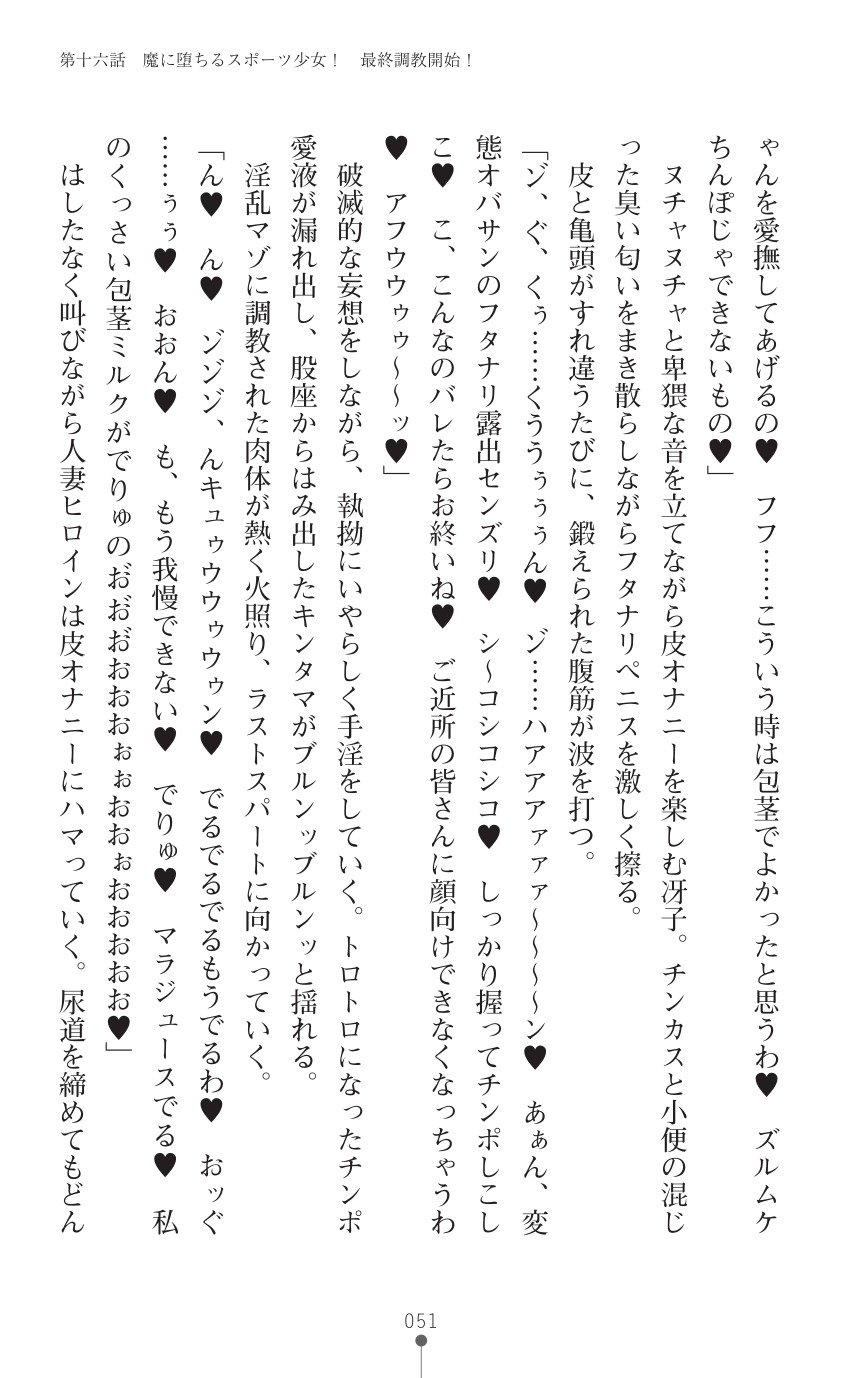 第十六話　魔に堕ちるスポーツ少女！　最終調教開始！
ゃんを愛撫してあげるの♥　フフ……こういう時は包茎でよかったと思うわ♥　ズルムケ
ちんぽじゃできないもの♥」
　ヌチャヌチャと卑猥な音を立てながら皮オナニーを楽しむ冴子。チンカスと小便の混じ
った臭い匂いをまき散らしながらフタナリペニスを激しく擦る。
　皮と亀頭がすれ違うたびに、鍛えられた腹筋が波を打つ。
「ゾ、ぐ、くぅ……くううぅぅん♥　ゾ……ハアアアァァァ～～～～ン♥　あぁん、変
態オバサンのフタナリ露出センズリ♥　シ～コシコシコ♥　しっかり握ってチンポしこし
こ♥　こ、こんなのバレたらお終いね♥　ご近所の皆さんに顔向けできなくなっちゃうわ
♥　アフウウゥゥ～～ッ♥」
　破滅的な妄想をしながら、執拗にいやらしく手淫をしていく。トロトロになったチンポ
愛液が漏れ出し、股座からはみ出したキンタマがブルンッブルンッと揺れる。
　淫乱マゾに調教された肉体が熱く火照り、ラストスパートに向かっていく。
「ん♥　ん♥　ゾゾゾ、んキュゥウウゥウゥン♥　でるでるでるもうでるわ♥　おッぐ
……ぅぅ♥　おおん♥　も、もう我慢できない♥　でりゅ♥　マラジュースでる♥　私
のくっさい包茎ミルクがでりゅのお゛お゛お゛おおおぉぉおおぉおおおおお♥」
　はしたなく叫びながら人妻ヒロインは皮オナニーにハマっていく。尿道を締めてもどん
051